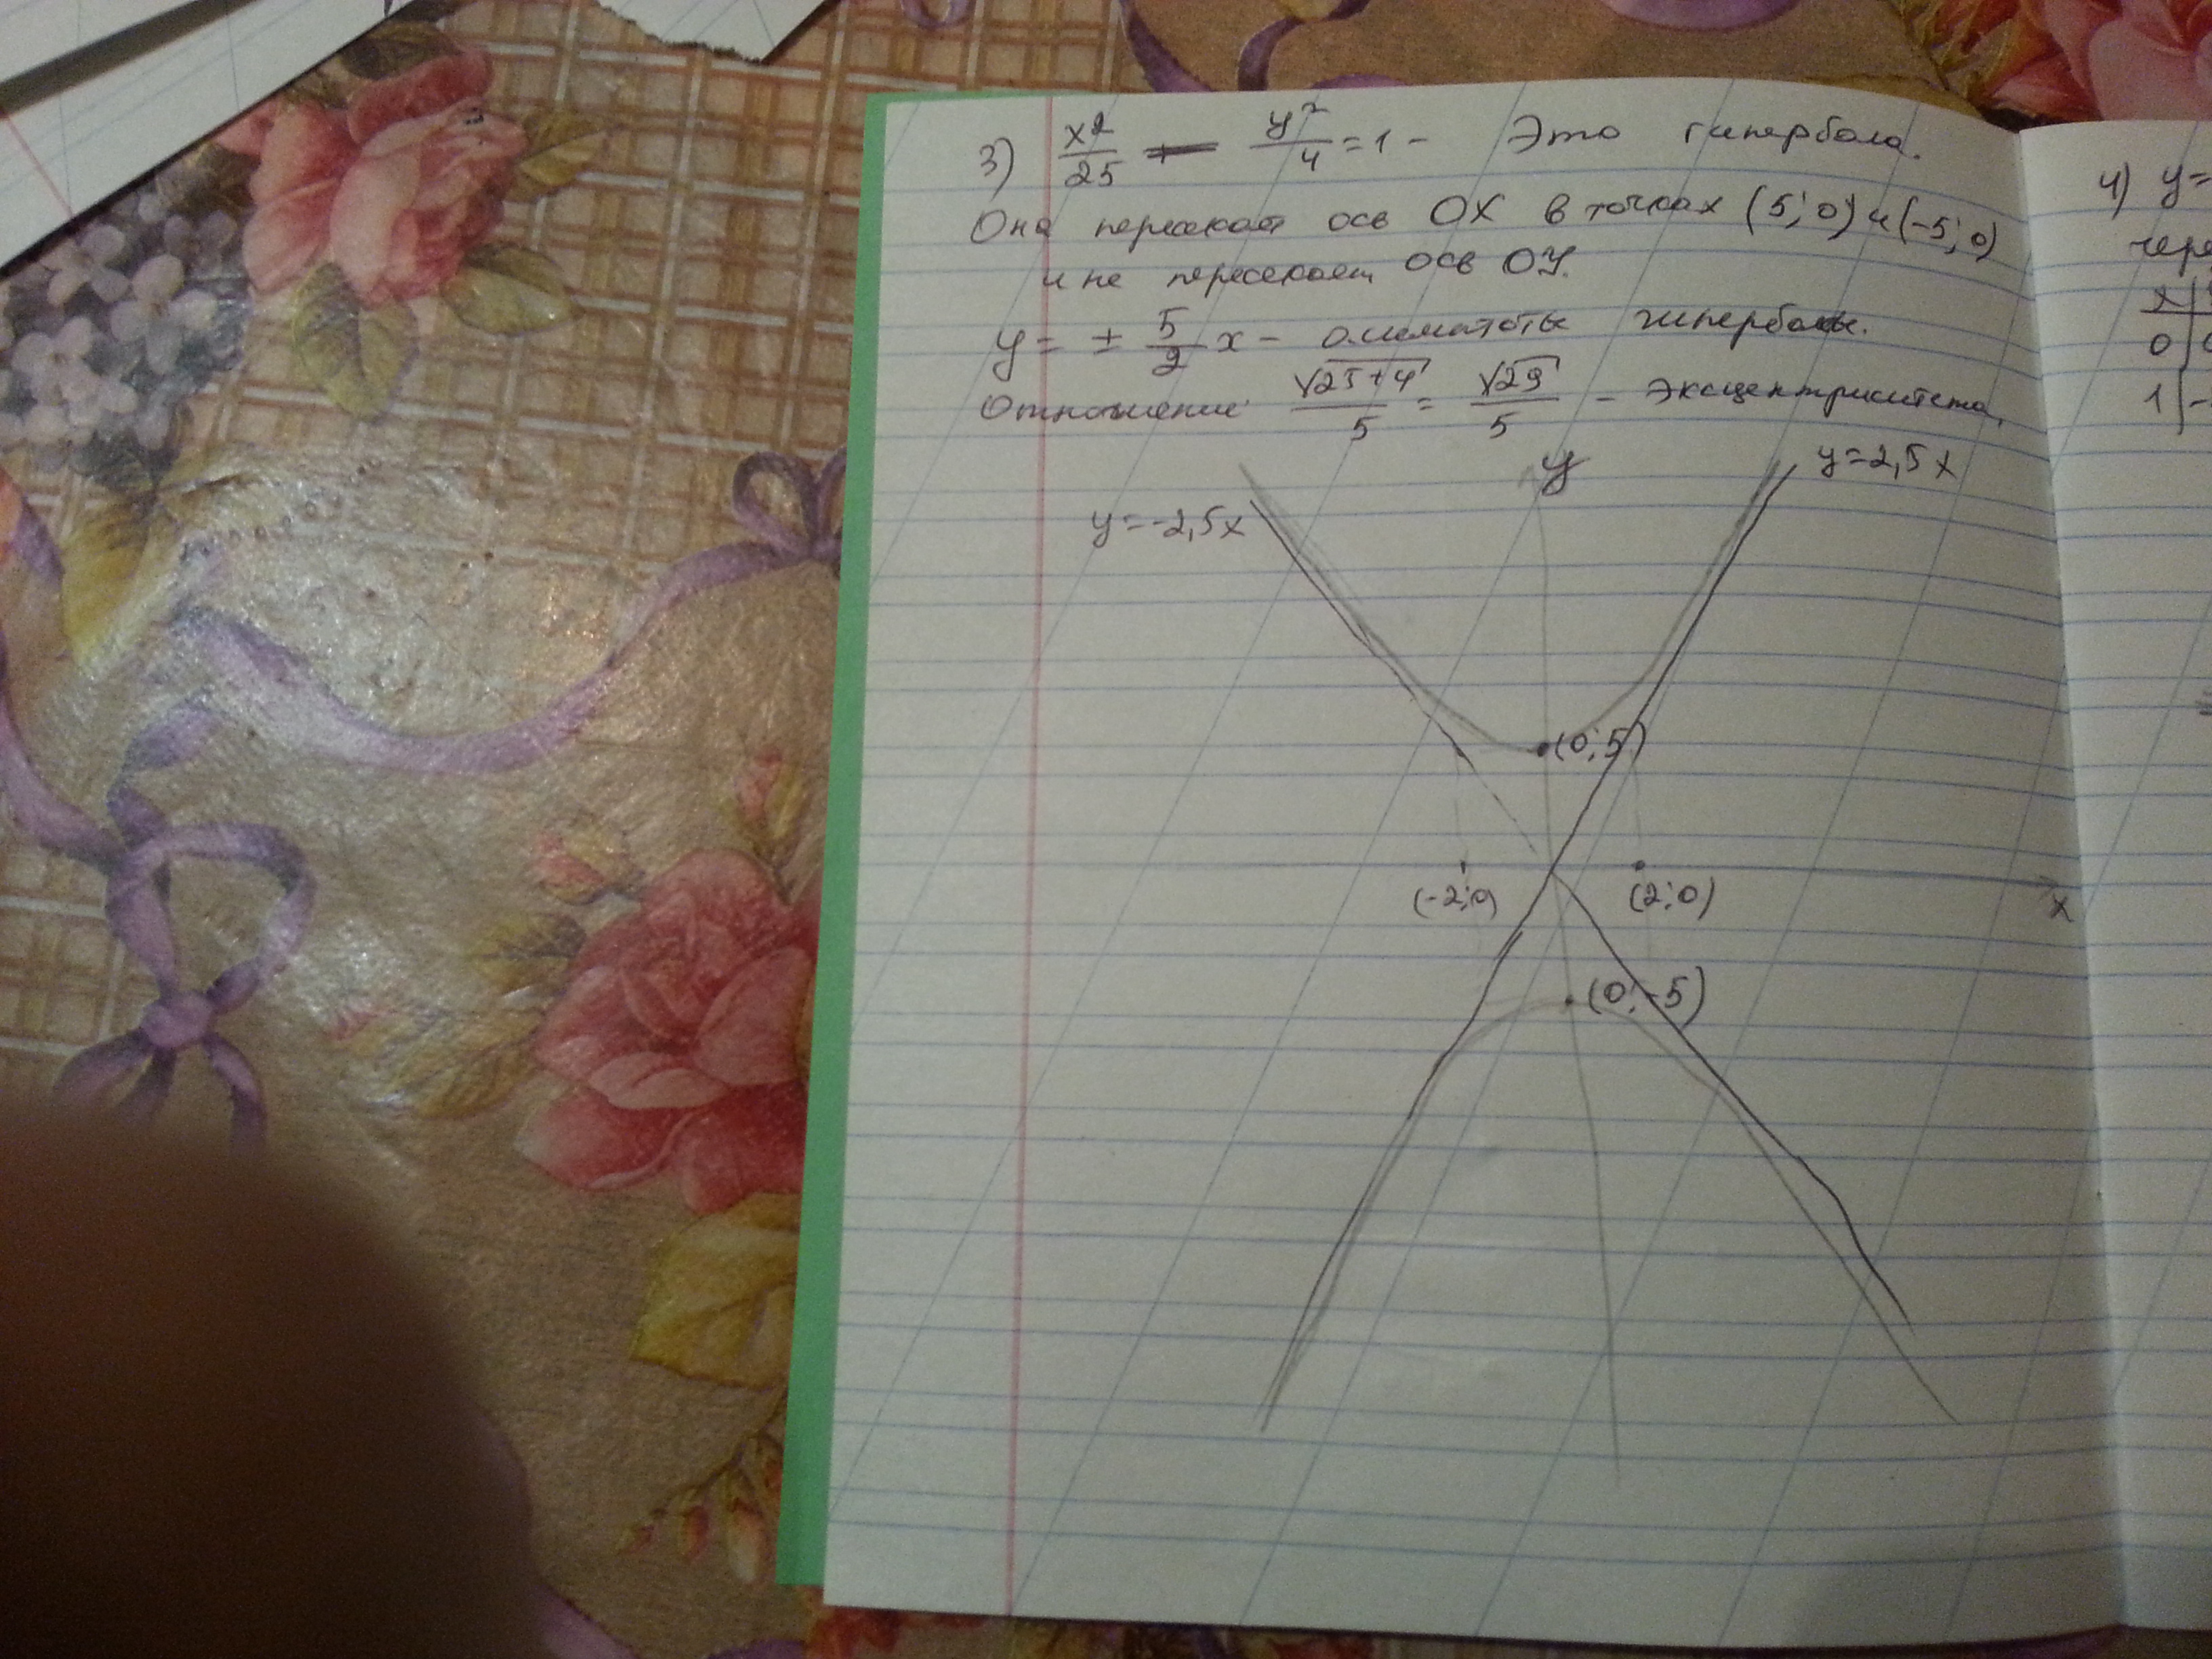 3) x²/25 - y²/4 = 1 - Это гипербола.
Она пересекает ось OX в точках (5; 0) и (-5; 0)
и не пересекает ось OY.
y = ± 5/2 x - асимптоты гиперболы.
Отношение √25+4/5 = √29/5 - эксцентриситета,
y y=2,5x
y=-2,5x
(0; 5)
(-2; 0) (2; 0)
x
(0; -5)
4) y=
чере
x
0
1 -